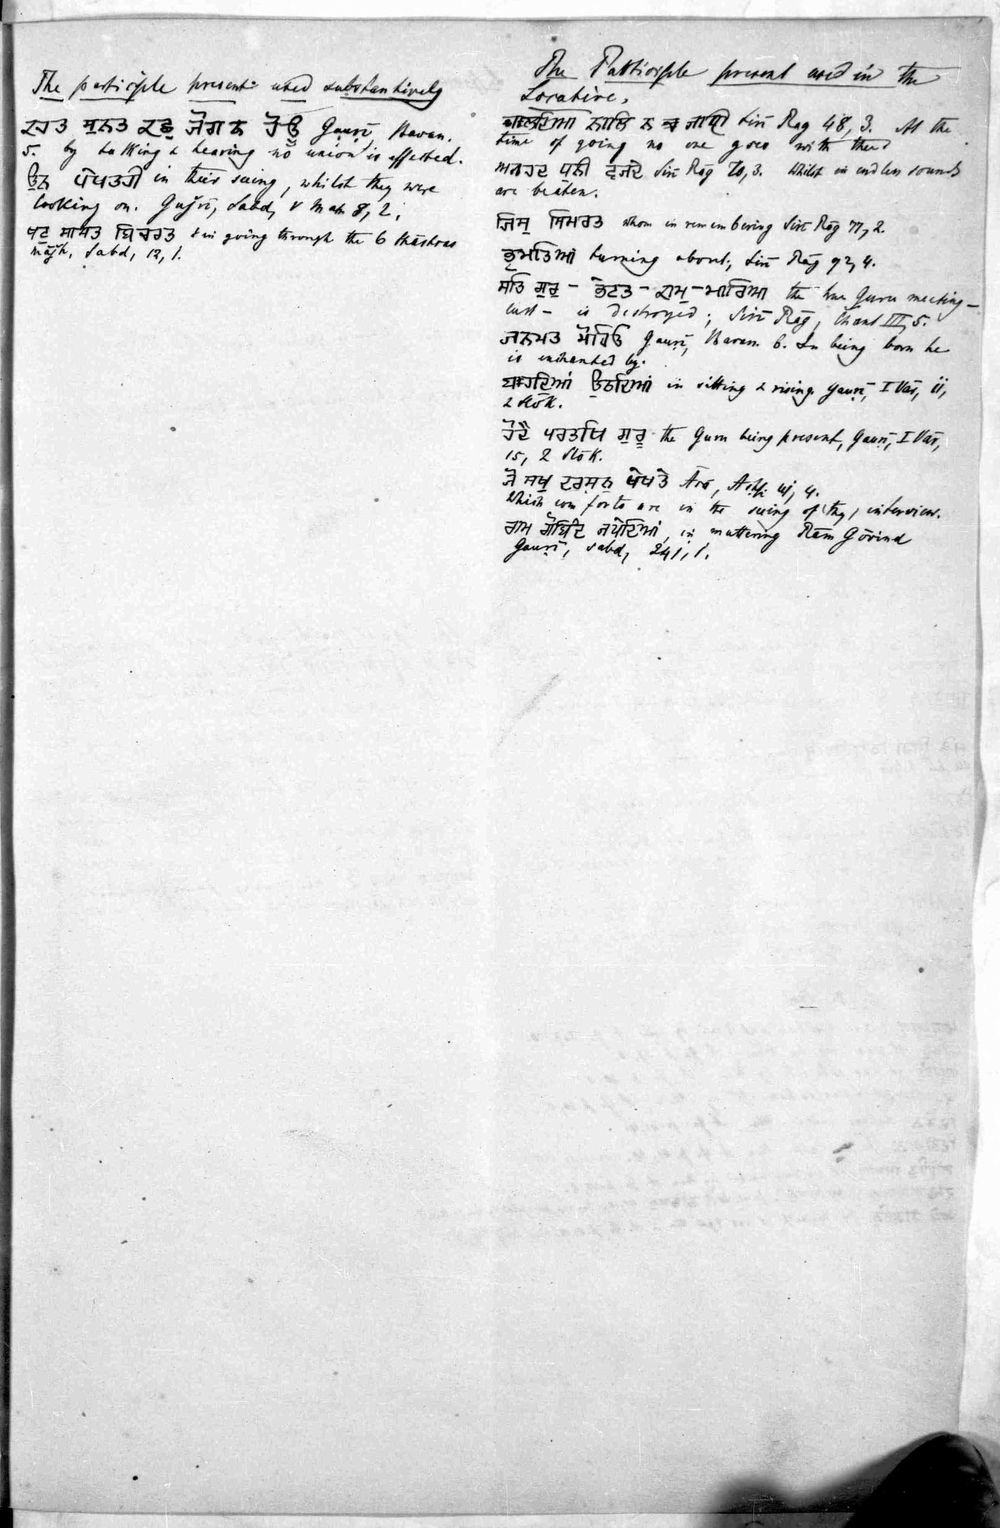 The participle present used substantively
ਕਹਤ ਸੁਨਤ ਕਛੁ ਜੋਗ ਨ ਹੋਊ Gaurī, Bavan.
5. by talking & hearing no union is effected.
ਉਨ ਪੇਖਤਹੀ in their seeing, whilst they were
looking on. Gujrī, Sabd, V Mah 8, 2;
ਖਟੁ ਸਾਸਤ ਬਿਚਰਤ in going through the 6 Shāstras
Mājh, Sabd, 12, 1.
The Participle present used in the
Locative.
ਚਲਦਿਆ ਨਾਲਿ ਨ ਜਾਂਧੀ Sirī Rāg 48, 3. At the
time of going no one goes with thee
ਅਨਹਦ ਧੁਨੀ ਵਜਦੇ Sirī Rāg 70, 3. Whilst in endless sounds
are beaten.
ਜਿਸੁ ਸਿਮਰਤ whom in remembering Sirī Rāg 77, 2
ਭ੍ਰਮਤਿਆਂ turning about, Sirī Rāg 92, 4.
ਸਤਿ ਗੁਰੁ - ਭੇਟਤ - ਕਾਮੁ - ਮਾਰਿਆ the true Guru meeting -
lust - is destroyed; Sirī Rāg, Chant III, 5.
ਜਨਮਤ ਮੋਹਿਓ Gaurī, Bavan. 6. In being born he
is enchanted by.
ਬਾਹਦਿਆਂ ਉਠਦਿਆਂ in sitting & rising. Gaurī, I Vār, ii,
2 Slōk.
ਹੋਦੈ ਪਰਤਖਿ ਗੁਰੂ the Guru being present, Gaurī, I Vār,
15, 2 Slōk.
ਜੋ ਸੁਖੁ ਦਰਸਨੁ ਪੇਖਤੇ Āsā,
Which comforts are in the seeing of thy, interview.
ਰਾਮ ਗੋਬਿੰਦ ਜਪੇਦਿਆਂ, in muttering Rām Gōvind
Gaurī, Sabd, 241, 1.